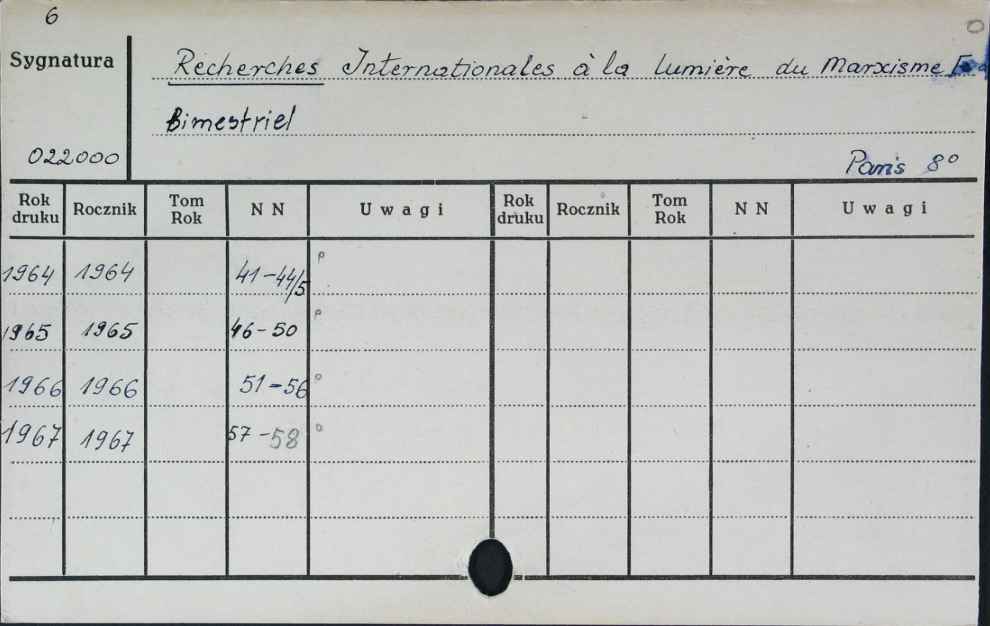 6
Sygnatura
Recherches Internationales à la lumière du Marxisme
Bimestriel
022000
Paris 8°
Rok druku Rocznik Tom Rok N N Uwagi Rok druku Rocznik Tom Rok N N Uwagi
1964 1964 41-44/5 p
1965 1965 46-50 p
1966 1966 51-56 o
1967 1967 57-58 o